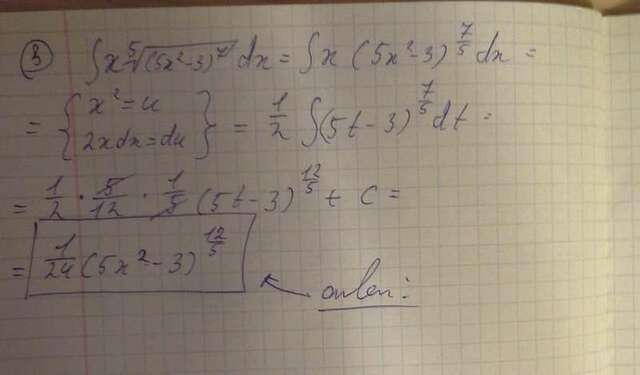 ③ ∫x⁵√(5x²-3)⁷ dx = ∫x (5x²-3)^(7/5) dx =
= {x² = u
2xdx = du} = 1/2 ∫(5t-3)^(7/5) dt =
= 1/2 · 5/12 · 1/5 (5t-3)^(12/5) + C =
= 1/24 (5x²-3)^(12/5)
ответ: